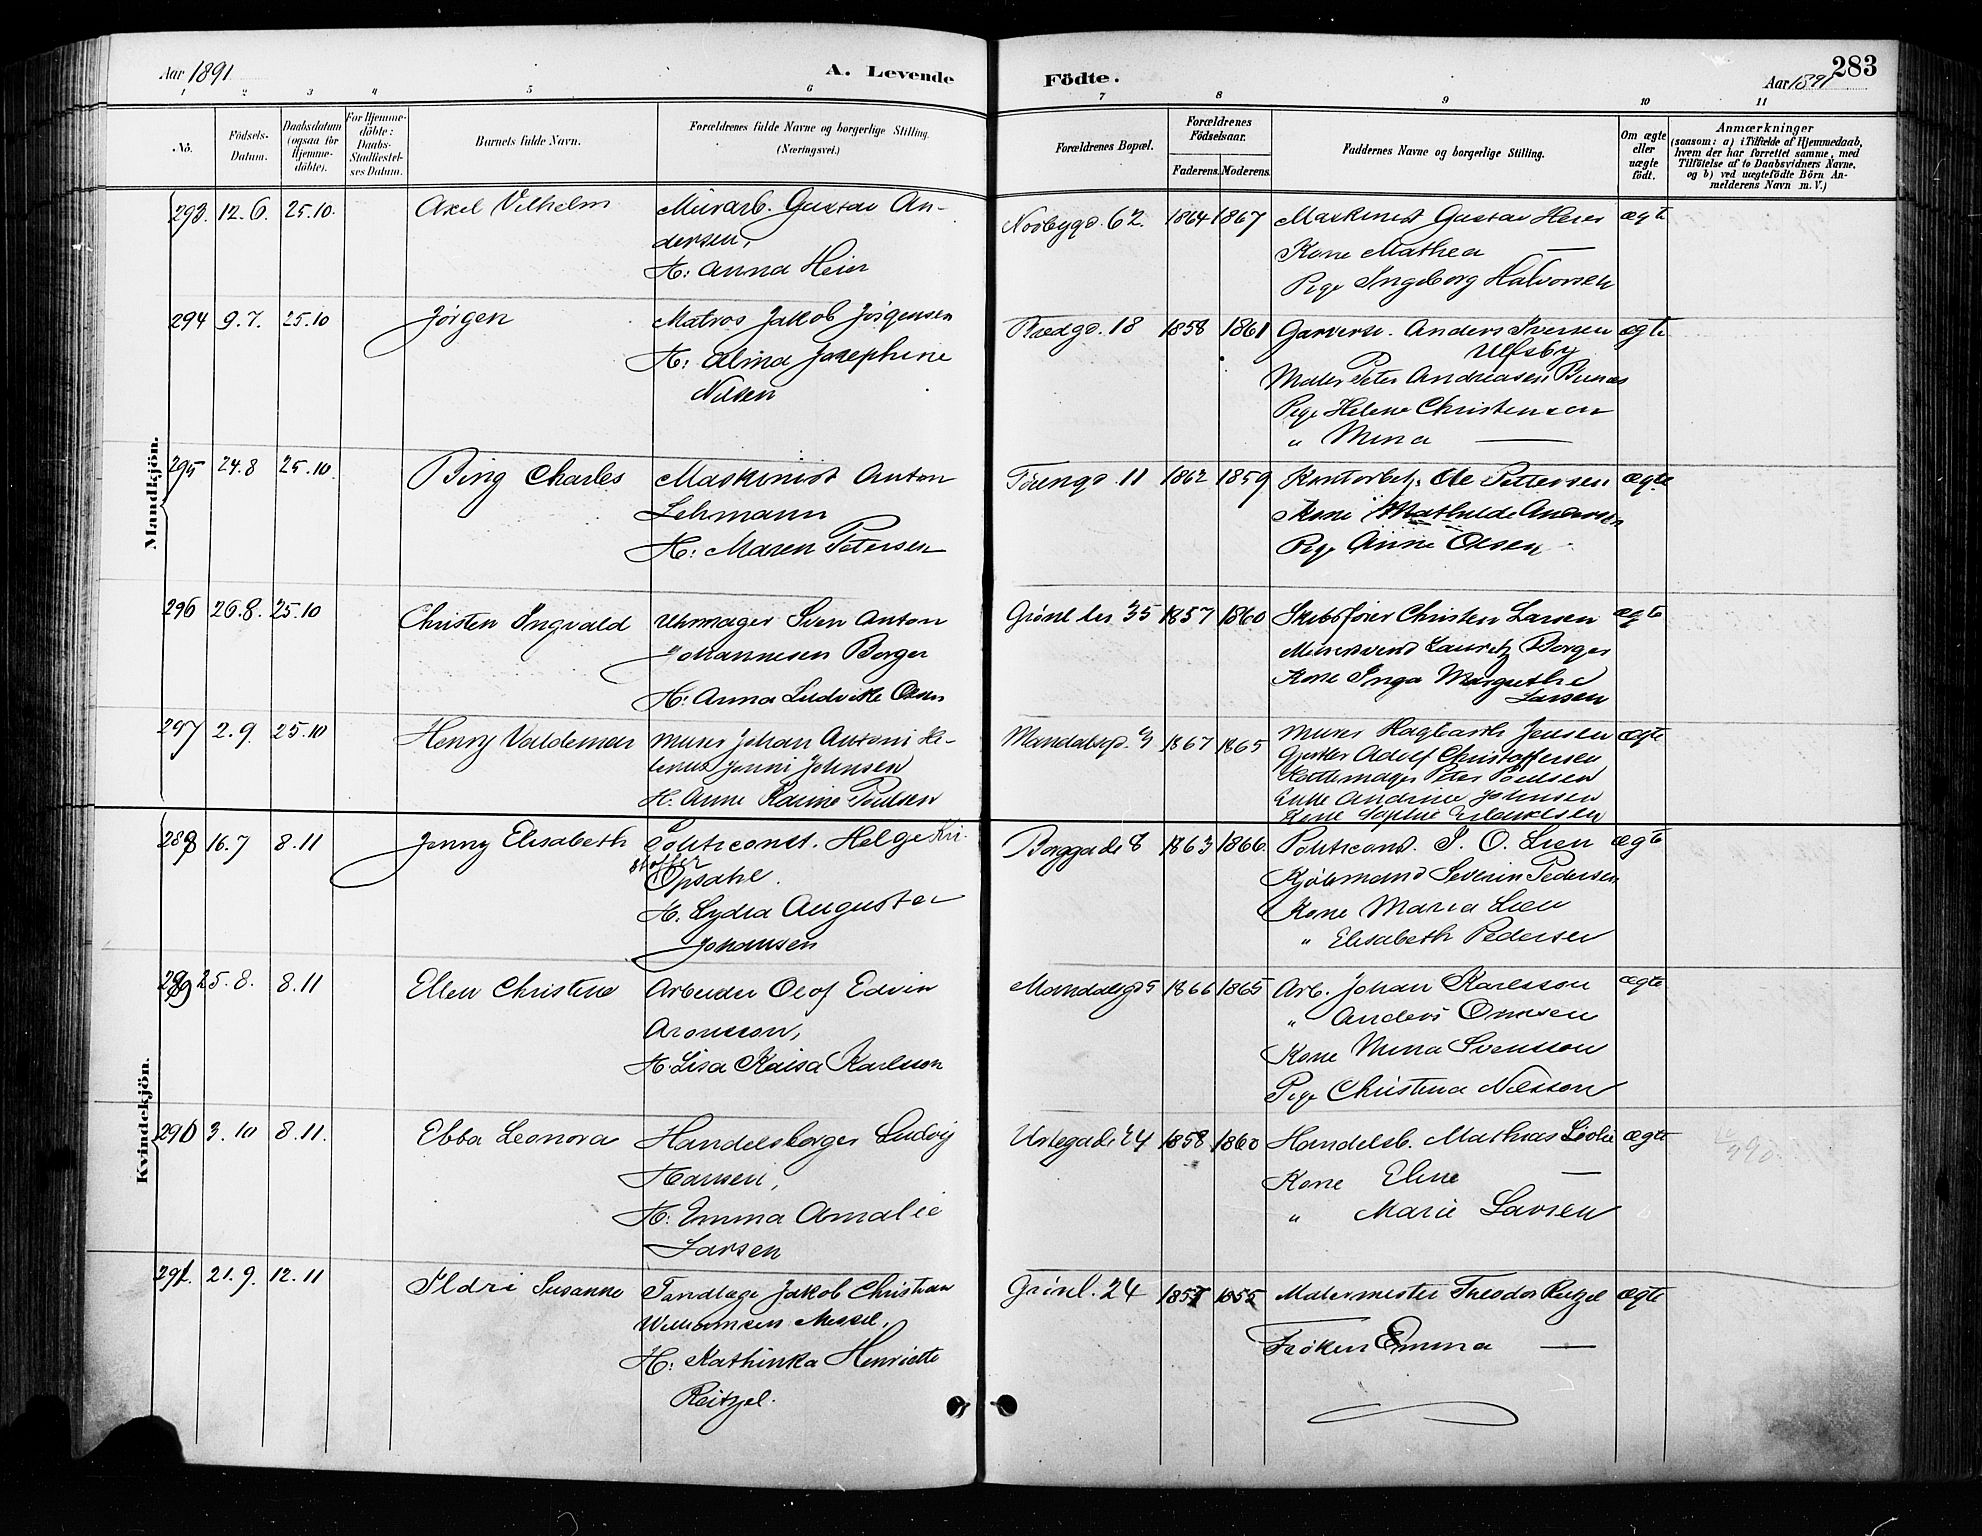 Aar 1891
A. Levende
Födte.
Aar 1891
283
1 2 3 4 5 6 7 8 9 10 11
No.
Födsels-Datum.
Daabsdatum (ogsaa for Hjemme-döbte).
For Hjemme-döbte: Daabs-Stadfæstel-ses Datum.
Barnets fulde Navn.
Forældrenes fulde Navne og borgerlige Stilling. (Næringsvei.)
Forældrenes Bopæl.
Forældrenes Födselsaar.
Faderens. Moderens.
Faddernes Navne og borgerlige Stilling.
Om ægte eller uægte födt.
Anmærkninger
(saasom: a) i Tilfælde af Hjemmedaab,
hvem der har forrettet samme, med
Tilföielse af to Daabsvidners Navne,
og b) ved uægtefödte Börn An-
melderens Navn m. V.)
Mandkjön.
293. 12.6. 25.10. Axel Vilhelm Murarb. Gustav An- Norbygd. 62. 1864 1867 Maskinist Gustav Heier ægte
dersen, Kone Mathea —
H: Anna Heier Pige Ingeborg Halvorsen
294 9.7. 25.10 Jörgen Matros Jakob Jörgensen Bredgd. 18 1858 1861 Garversv. Anders Iversen ægte
H: Alma Josephine Ulfsby
Nilsen Maler Peter Andreasen
Pige Helene Christensen
" Mina —
295 24.8 25.10 Bing Charles Maskinist Anton Töiengd. 11 1862 1859 Kontorbetj. Ole Pettersen ægte
Lehmann Kone Mathilde Andersen
H: Maren Petersen Pige Anne Olsen
296 26.8. 25.10 Christen Ingvald Uhrmager Sven Anton Grönl ler 35 1857 1860 Skibsförer Christen Larsen ægte
Johannesen Borger Murersvend Lauritz Borger
H: Anna Ludvikke Olsen Kone Inga Margrethe
Larsen
297 2.9. 25.10 Henry Valdemar Murer Johan Antoni He- Mandalsgd. 3 1867 1865 Murer Hagbarth Jensen ægte
lenus Jonni Johnsen Gjörtler Adolf Christoffersen
H. Anne Karine Poulsen Peter Poulsen
Enke Andrine Johnsen
Kone Sophie
Kvindekjön.
288 16.7 8.11 Jenny Elisabeth Politiconst. Helge Kri- Borggade 8 1863 1866 Politiconst. P. O. Lien ægte
stoffer
Opsahl. Kjöbmand Severin Pedersen
H. Lydia Augusta Kone Maria Lien
Johansen " Elisabeth Pedersen
289 25.8. 8.11 Ellen Christine Arbeider Olof Edvin Mandalsgd 5 1866 1865 Arb. Johan Karlsson ægte
Aronsson, " Anders Omsen
H. Lisa Kaisa Karlsson Kone Mina Svensson
Pige Christina Nilsson
290 3.10 8.11. Ebba Leonora Handelsborger Ludvig Urtegade 24 1858 1860 Handelsb. Mathias Lövlie ægte
Hansen, Kone Eline —
H: Emma Amalie " Marie Larsen
Larsen
291. 21.9. 12.11 Ildri Susanne Tandlæge Jakob Christian Grönl. 24 1857 1855 Malermester Theodor Reitzel ægte
Willumsen Messel, Fröken Emma —
H: Kathinka Henriette
Reitzel.